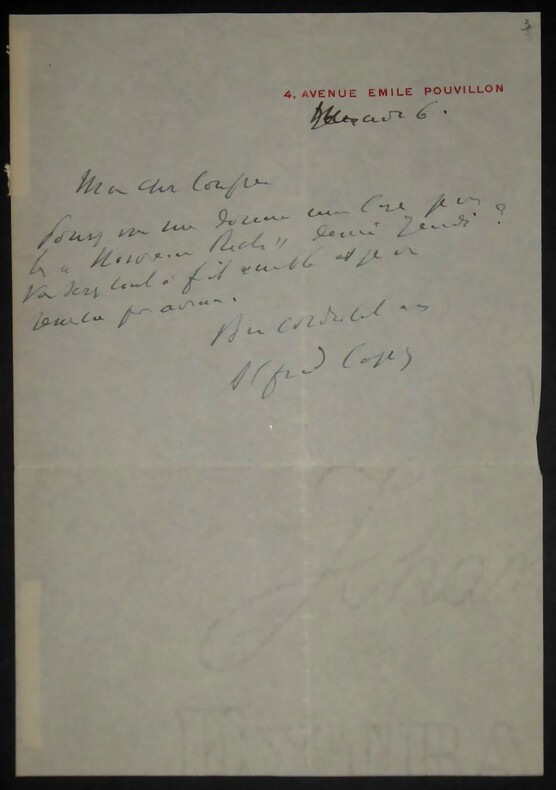 3
4, AVENUE EMILE POUVILLON
Mercredi 6.
Mon cher Confrère
Pouvez vous me donner une loge pour
les « Nouveaux Riches » demain Jeudi ?
Vous serez tout à fait aimable et je vous
remercie par avance.
Bien cordialement à vous
Alfred Capus